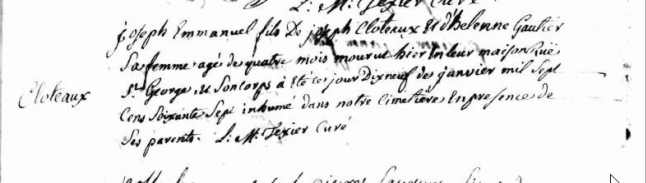 L: M: Texier Curé
Joseph Emmanuel fils De joseph Cloteaux Et d'helenne Gautier
Sa femme agé de quatre mois mourut hier En leur maison Rüe
Cloteaux
St George, et Son corps a Eté ce jour Dixneuf de janvier mil Sept
Cens Soixante Sept inhumé dans notre Cimetière En presence de
Ses parents. L: M: Texier Curé